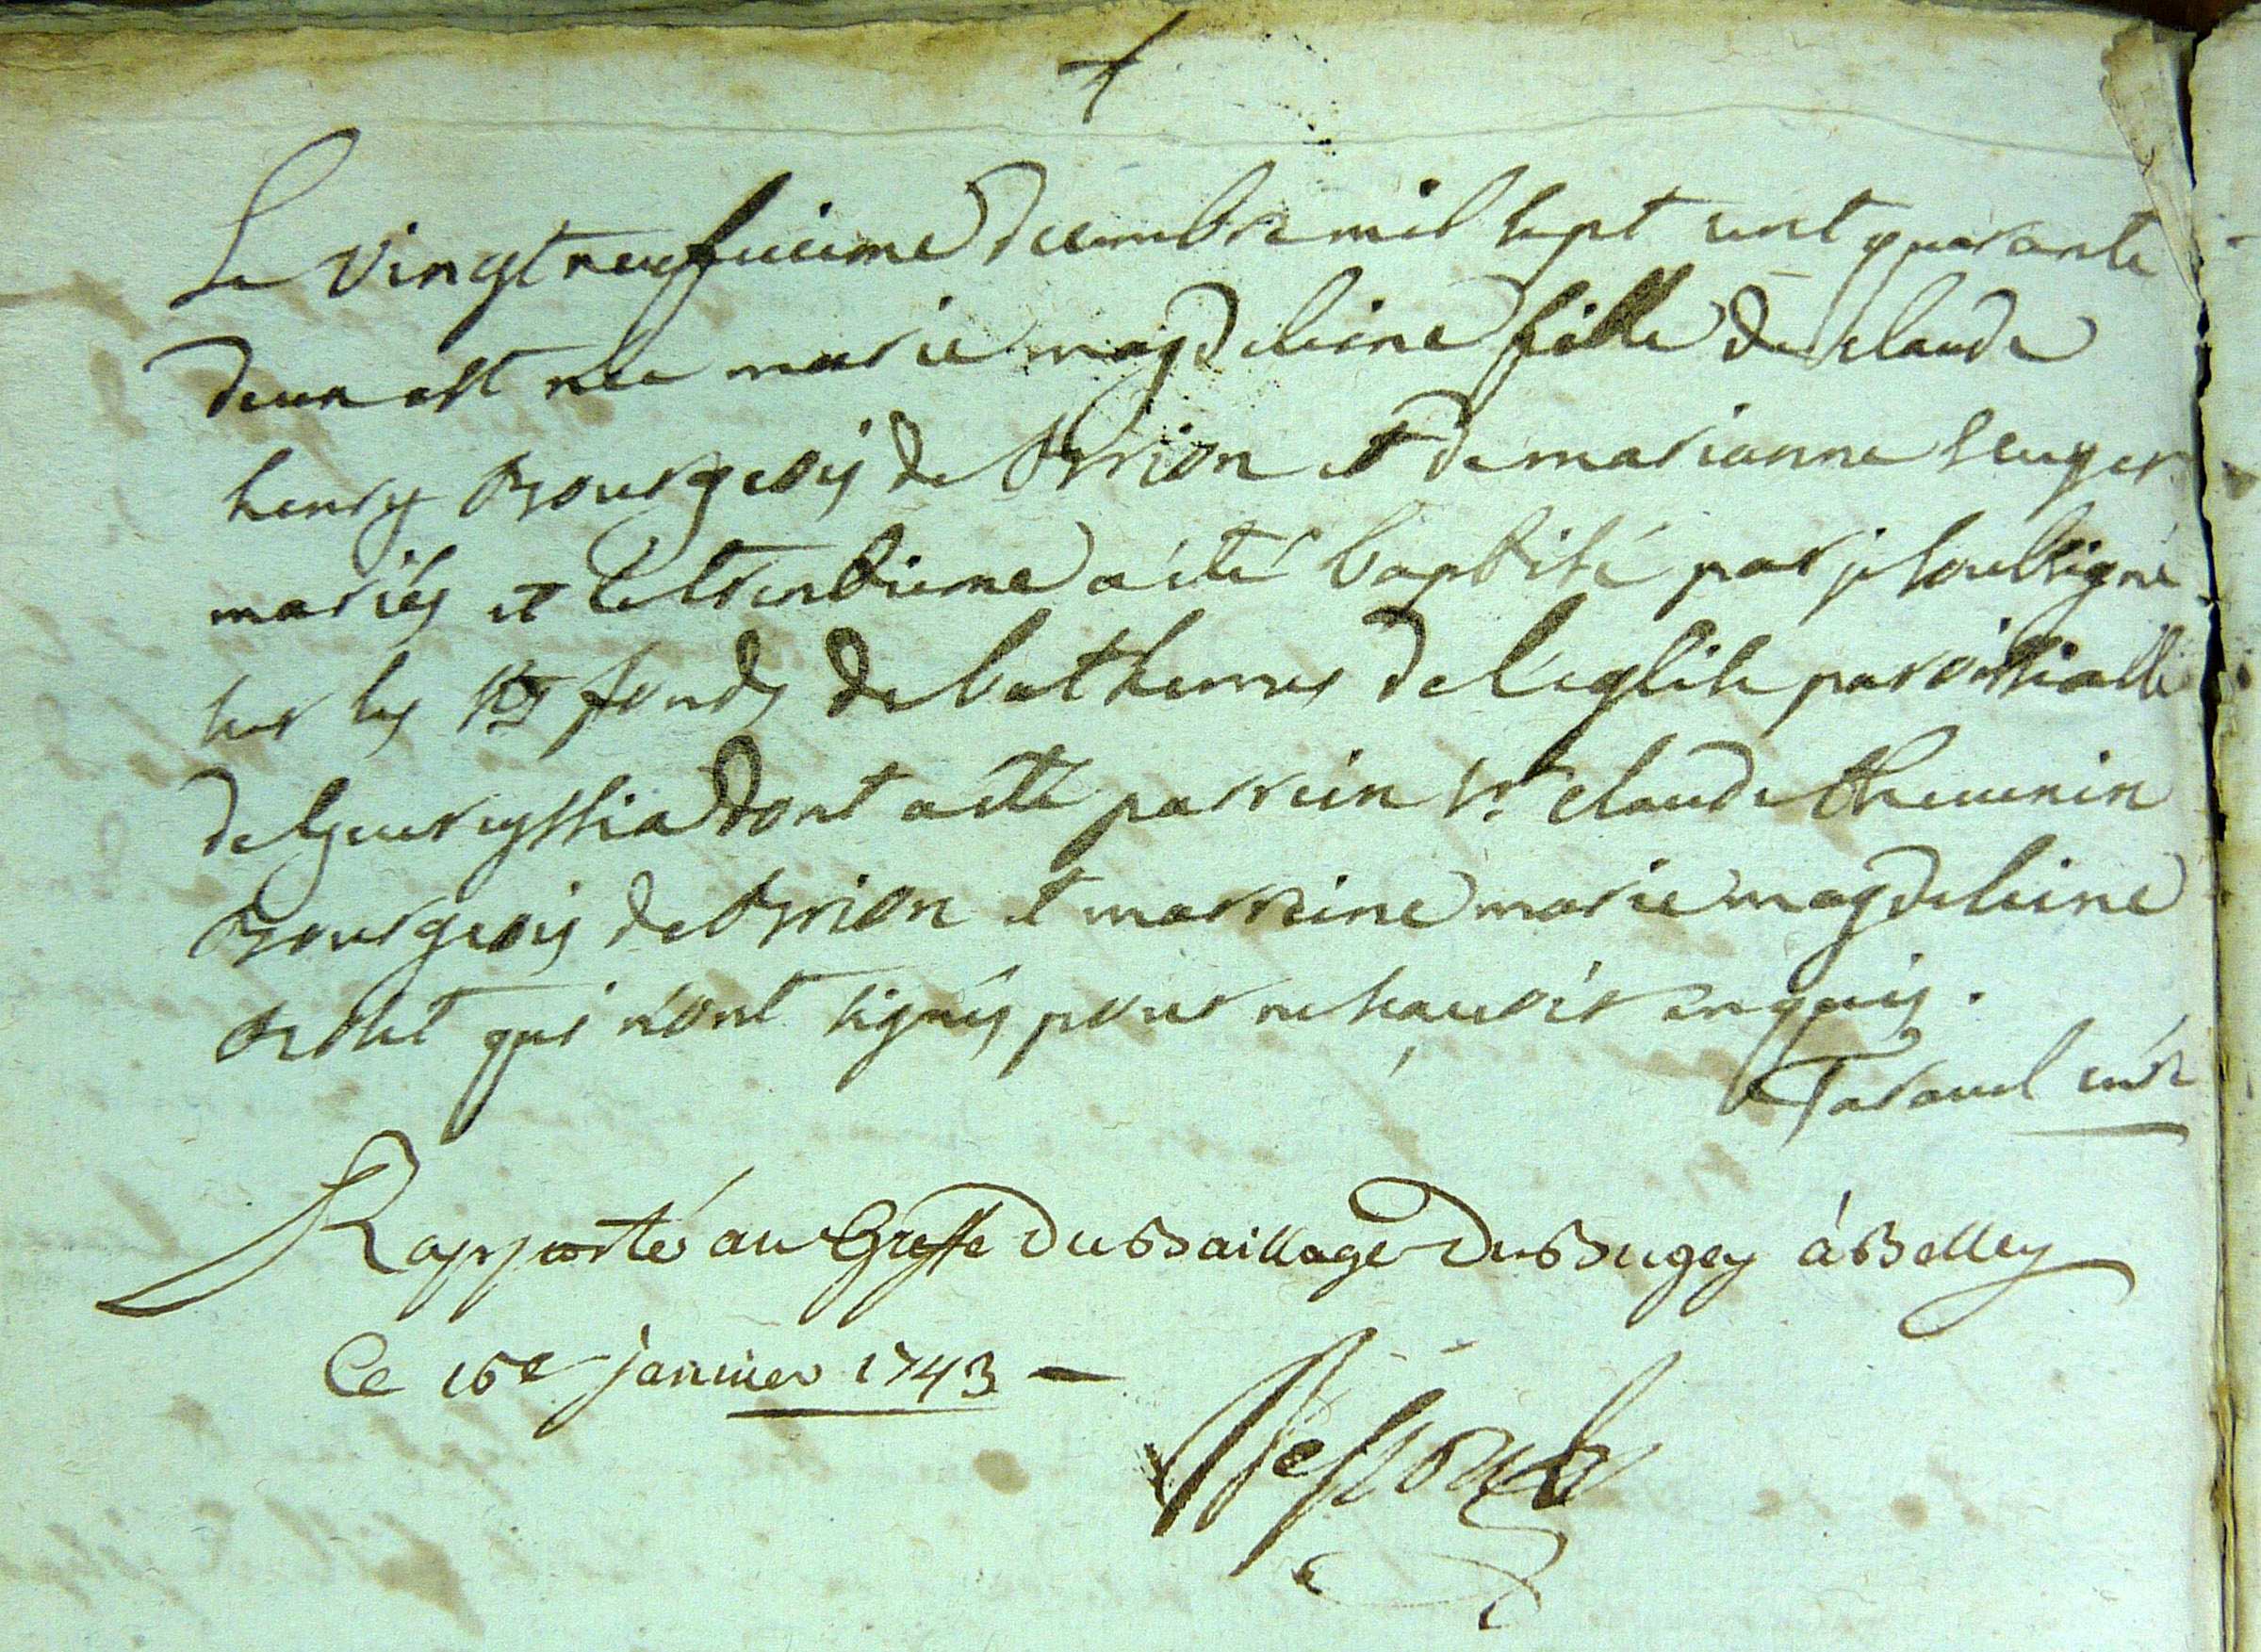 Le vingt neufuieme decembre mil sept cent quarante
deux est nee marie magdeleine fille de claude
henry Bourgeois de Brion et de marianne
mariés et le trentieme a été baptisé par je soussigné
sur les sts fonds de bathemes de l'eglise paroissialle
de gevreyssia dont a été parrein sr. claude thevenin
Bourgeois de Brion et marreine marie magdeleine
qui n'ont signés pour ne sçavoir enquis.
Taravel curé
Rapporté au Greffe du Baillage du Bugey à Belley
Ce 16e janvier 1743